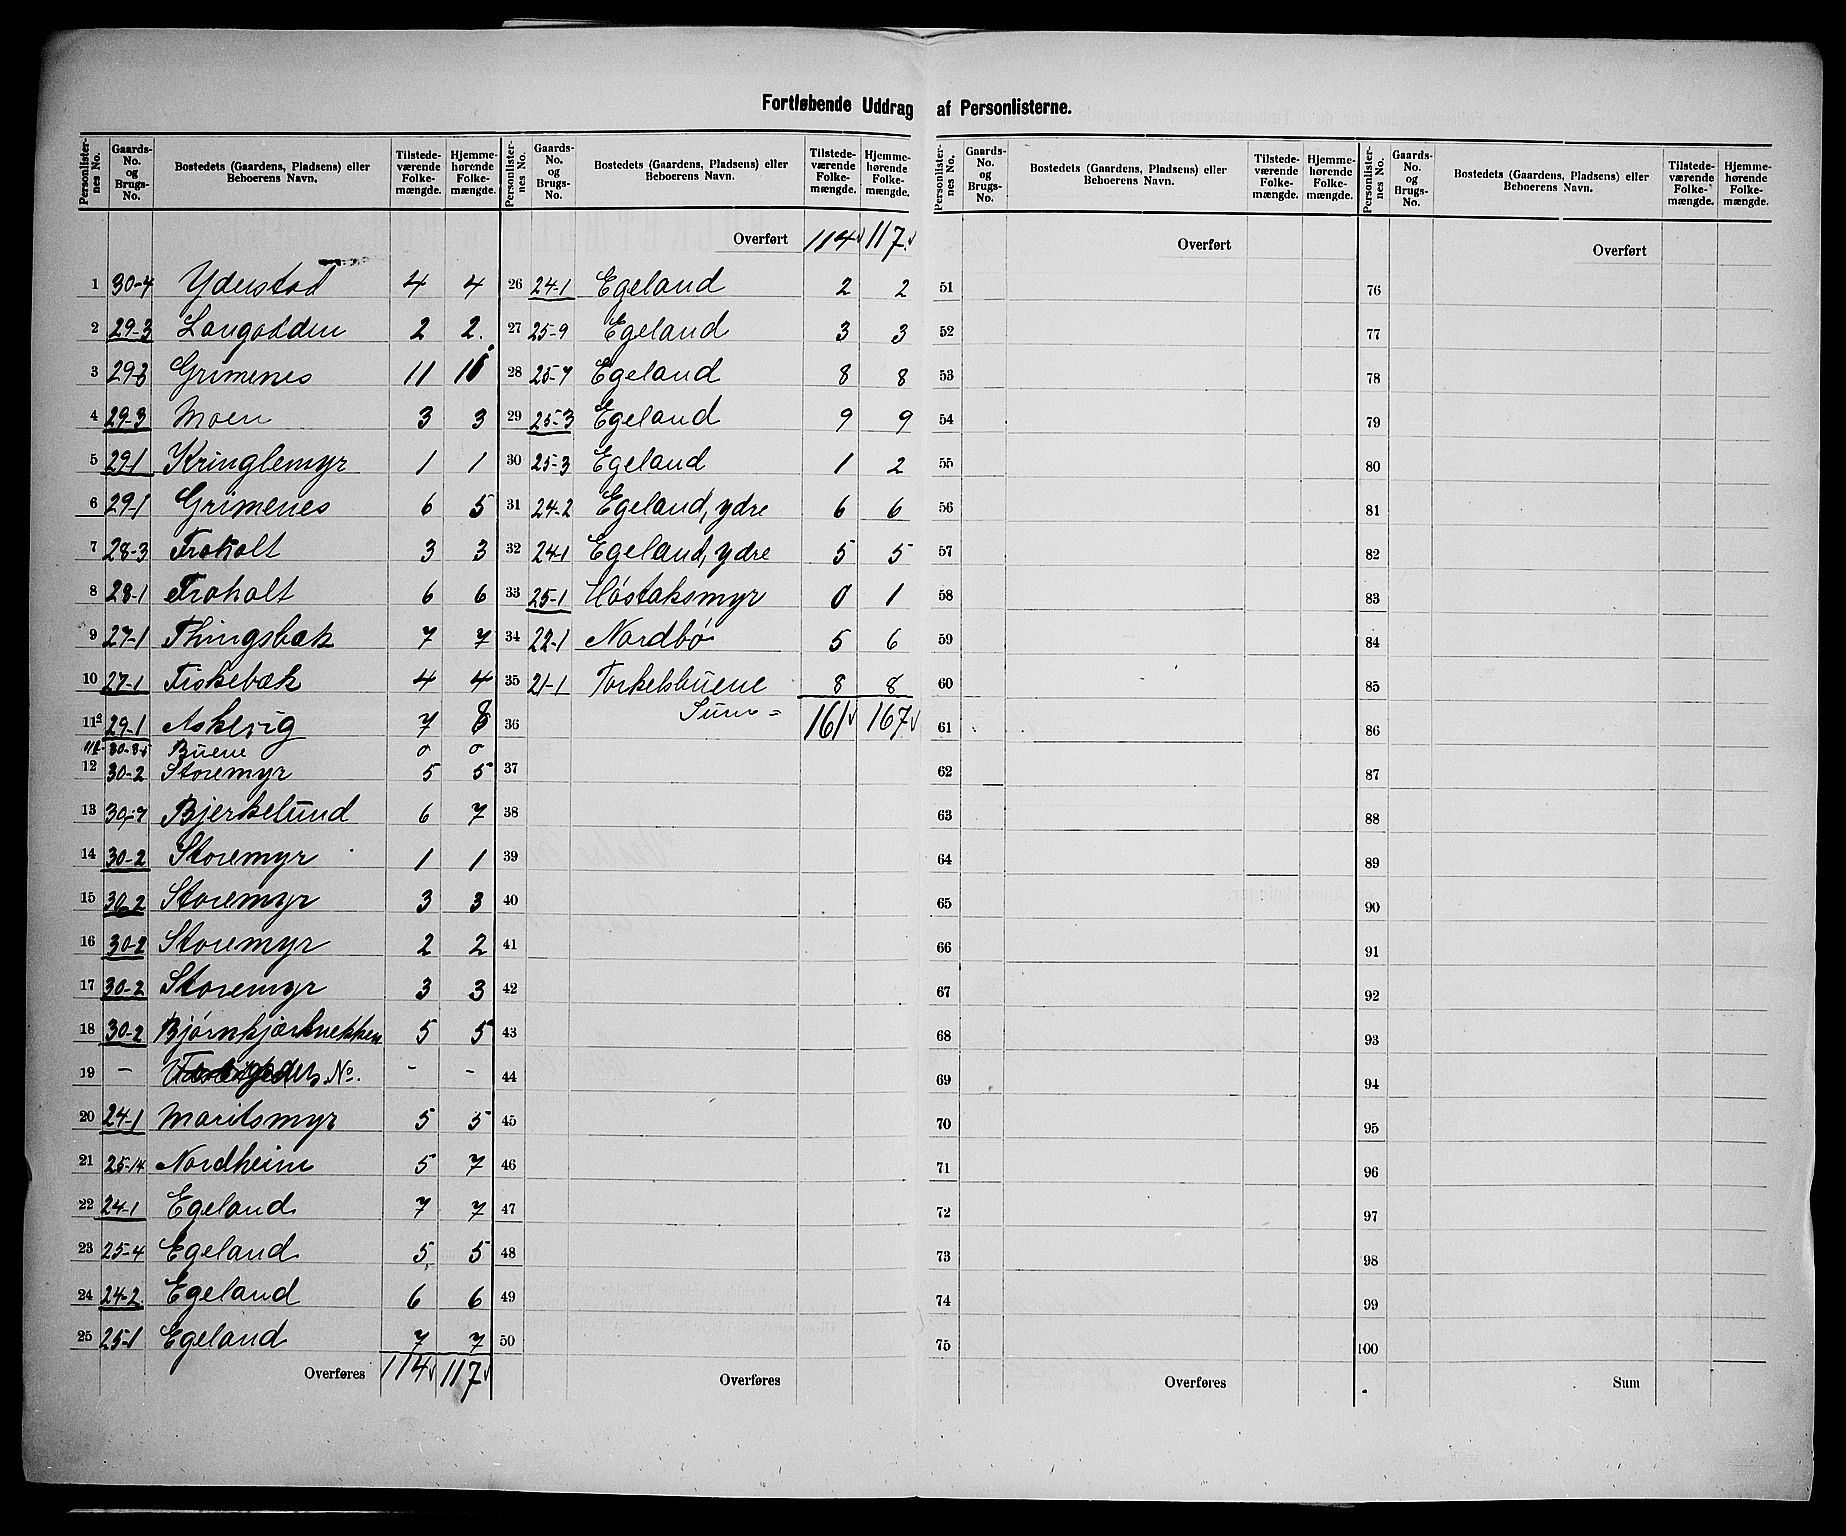 Fortløbende Uddrag af Personlisterne.
Personlister-nes No. | Gaards-No. og Brugs-No. | Bostedets (Gaardens, Pladsens) eller Beboerens Navn. | Tilstede-værende Folke-mængde. | Hjemme-hørende Folke-mængde.
1 30-4 Yderstad 4 4
2 29-3 Langodden 2 2.
3 29-3 Grimenes 11 11
4 29-3 Moen 3 3
5 29-1 Kringlemyr 1 1
6 29-1 Grimenes 6 5
7 28-3 Froholt 3 3
8 28-1 Froholt 6 6
9 27-1 Thingsbæk 7 7
10 27-1 Fiskebæk 4 4
11a 29-1 Askevig 7 8
11b 30-3-5 Buene 0 0
12 30-2 Storemyr 5 5
13 30-7 Bjerkelund 6 7
14 30-2 Storemyr 1 1
15 30-2 Storemyr 3 3
16 30-2 Storemyr 2 2
17 30-2 Storemyr 3 3
18 30-2 Bjørnkjærknekken 5 5
19 - No. - -
20 24-1 Maritsmyr 5 5
21 25-14 Nordheim 5 7
22 24-1 Egeland 7 7
23 25-4 Egeland 5 5
24 24-2 Egeland 6 6
25 25-1 Egeland 7 7
Overføres 114 117
Personlister-nes No. | Gaards-No. og Brugs-No. | Bostedets (Gaardens, Pladsens) eller Beboerens Navn. | Tilstede-værende Folke-mængde. | Hjemme-hørende Folke-mængde.
Overført 114 117
26 24-1 Egeland 2 2
27 25-9 Egeland 3 3
28 25-7 Egeland 8 8
29 25-3 Egeland 9 9
30 25-3 Egeland 1 2
31 24-2 Egeland, ydre 6 6
32 24-1 Egeland, ydre 5 5
33 25-1 Høstaksmyr 0 1
34 22-1 Nordbø 5 6
35 21-1 Torkelsbuene 8 8
36 Sum = 161 167
37
38
39
40
41
42
43
44
45
46
47
48
49
50
Overføres
Personlister-nes No. | Gaards-No. og Brugs-No. | Bostedets (Gaardens, Pladsens) eller Beboerens Navn. | Tilstede-værende Folke-mængde. | Hjemme-hørende Folke-mængde.
Overført
51
52
53
54
55
56
57
58
59
60
61
62
63
64
65
66
67
68
69
70
71
72
73
74
75
Overføres
Personlister-nes No. | Gaards-No. og Brugs-No. | Bostedets (Gaardens, Pladsens) eller Beboerens Navn. | Tilstede-værende Folke-mængde. | Hjemme-hørende Folke-mængde.
Overført
76
77
78
79
80
81
82
83
84
85
86
87
88
89
90
91
92
93
94
95
96
97
98
99
100
Sum